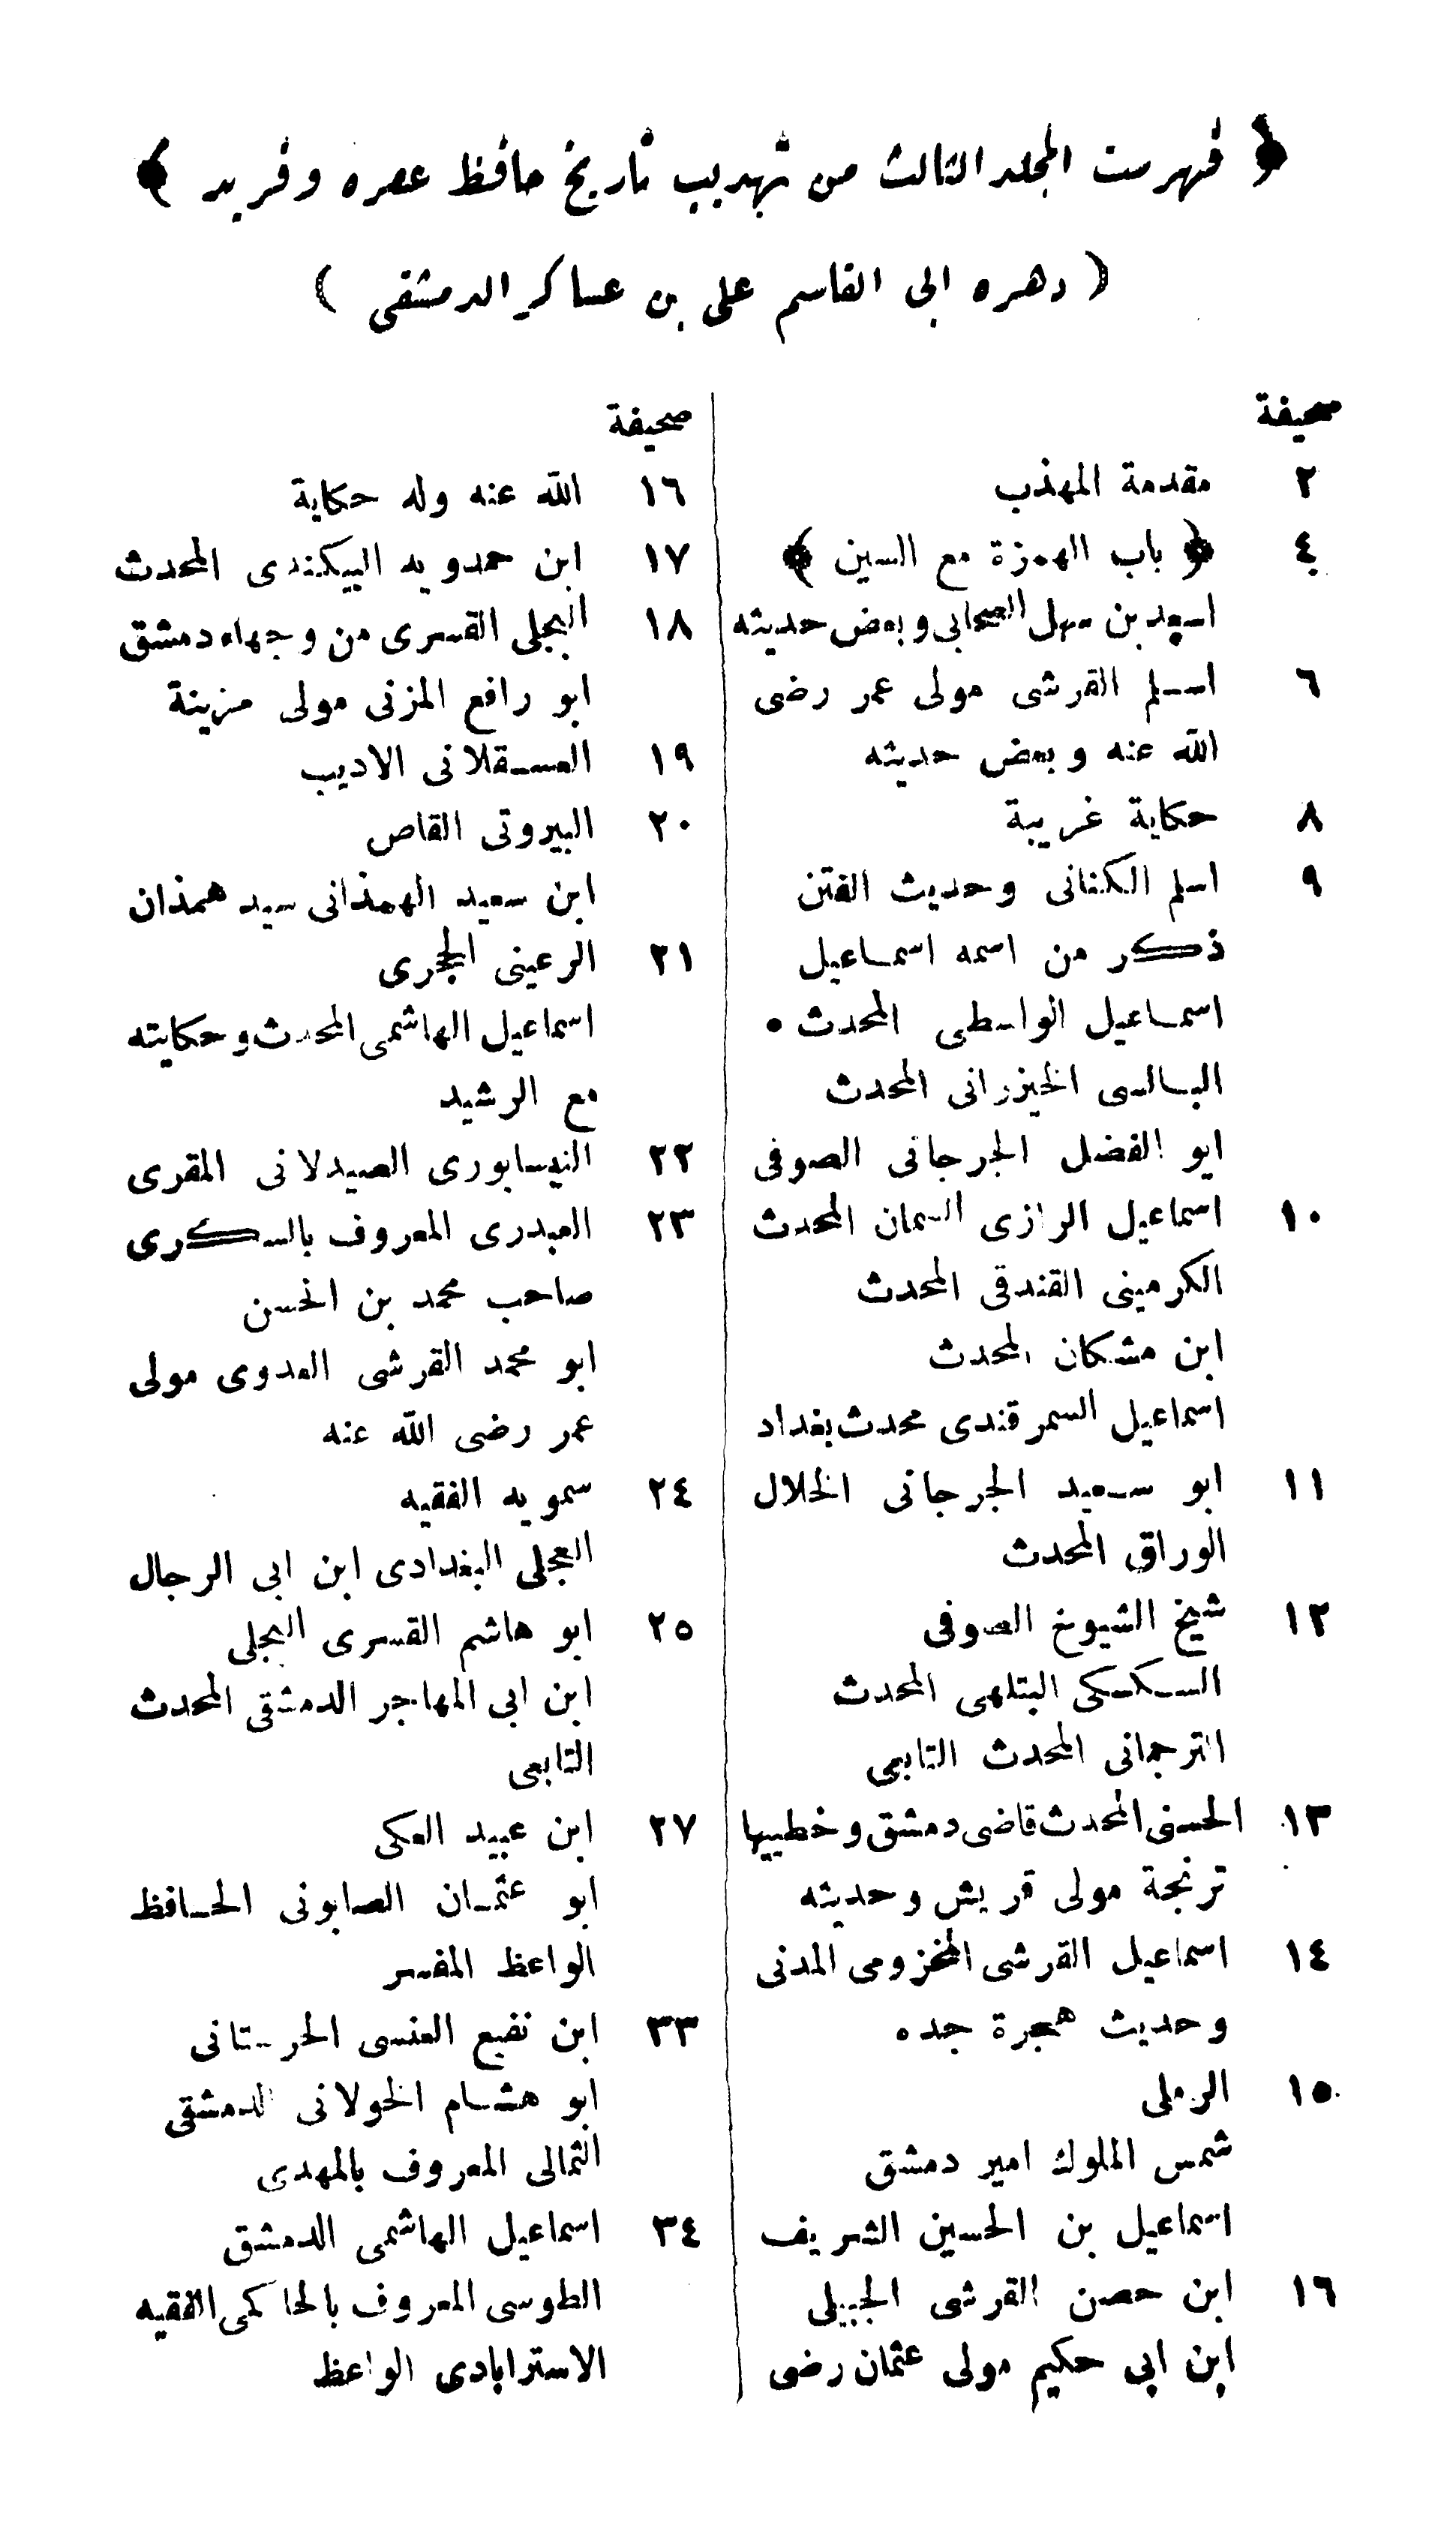 ﴿ فهرست المجلد الثالث من تهذيب تاريخ حافظ عصره وفريد ﴾
( دهره ابى القاسم على بن عساكر الدمشقى )
صحيفة
٢ مقدمة المهذب
٤ ﴿ باب الهمزة مع السين ﴾
اسعد بن سهل الصحابى وبعض حديثه
٦ اسلم القرشى مولى عمر رضى
الله عنه وبعض حديثه
٨ حكاية غريبة
٩ اسلم الكنانى وحديث الفتن
ذكر من اسمه اسماعيل
اسماعيل الواسطى المحدث
البالسى الخيزرانى المحدث
ابو الفضل الجرجانى الصوفى
١٠ اسماعيل الرازى السمان المحدث
الكرمينى القندقى المحدث
ابن مشكان المحدث
اسماعيل السمرقندى محدث بغداد
١١ ابو سعيد الجرجانى الخلال
الوراق المحدث
١٢ شيخ الشيوخ الصوفى
السكسكى البتلهى المحدث
الترجمانى المحدث التابعى
١٣ الحسنى المحدث قاضى دمشق وخطيبها
ترنجة مولى قريش وحديثه
١٤ اسماعيل القرشى المخزومى المدنى
وحديث هجرة جده
١٥ الرملى
شمس الملوك امير دمشق
اسماعيل بن الحسين الشريف
١٦ ابن حصن القرشى الجبيلى
ابن ابى حكيم مولى عثمان رضى
صحيفة
١٦ الله عنه وله حكاية
١٧ ابن حمدويه البيكندى المحدث
١٨ البجلى القسرى من وجهاء دمشق
ابو رافع المزنى مولى مزينة
١٩ العسقلانى الاديب
٢٠ البيروتى القاص
ابن سعيد الهمذانى سيد همذان
٢١ الرعينى الحجرى
اسماعيل الهاشمى المحدث وحكايته
مع الرشيد
٢٢ النيسابورى الصيدلانى المقرى
٢٣ العبدرى المعروف بالسكرى
صاحب محمد بن الحسن
ابو محمد القرشى العدوى مولى
عمر رضى الله عنه
٢٤ سمويه الفقيه
العجلى البغدادى ابن ابى الرجال
٢٥ ابو هاشم القسرى البجلى
ابن ابى المهاجر الدمشقى المحدث
التابعى
٢٧ ابن عبيد العكى
ابو عثمان الصابونى الحافظ
الواعظ المفسر
٣٣ ابن نفيع العنسى الحرستانى
ابو هشام الخولانى الدمشقى
الثمالى المعروف بالمهدى
٣٤ اسماعيل الهاشمى الدمشق
الطوسى المعروف بالحاكمى الفقيه
الاسترابادى الواعظ